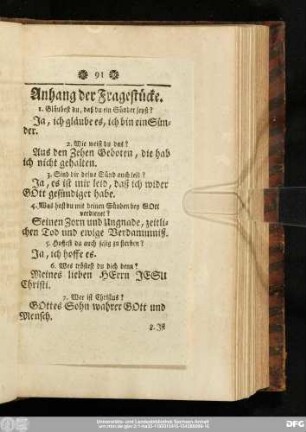 91
Anhang der Fragestücke.
1. Gläubest du, daß du ein Sünder seyst?
Ja, ich gläube es, ich bin ein Sün-
der.
2. Wie weist du das?
Aus den Zehen Geboten, die hab
ich nicht gehalten.
3. Sind dir deine Sünd auch leid?
Ja, es ist mir leid, daß ich wider
GOtt gesündiget habe.
4. Was hast du mit deinen Sünden bey GOtt
verdienet?
Seinen Zorn und Ungnade, zeitli-
chen Tod und ewige Verdammniß.
5. Hoffest du auch selig zu werden?
Ja, ich hoffe es.
6. Wes tröstest du dich denn?
Meines lieben HErrn JESU
Christi.
7. Wer ist Christus?
GOttes Sohn wahrer GOtt und
Mensch.
8. Jst
Universitäts- und Landesbibliothek Sachsen-Anhalt
DFG